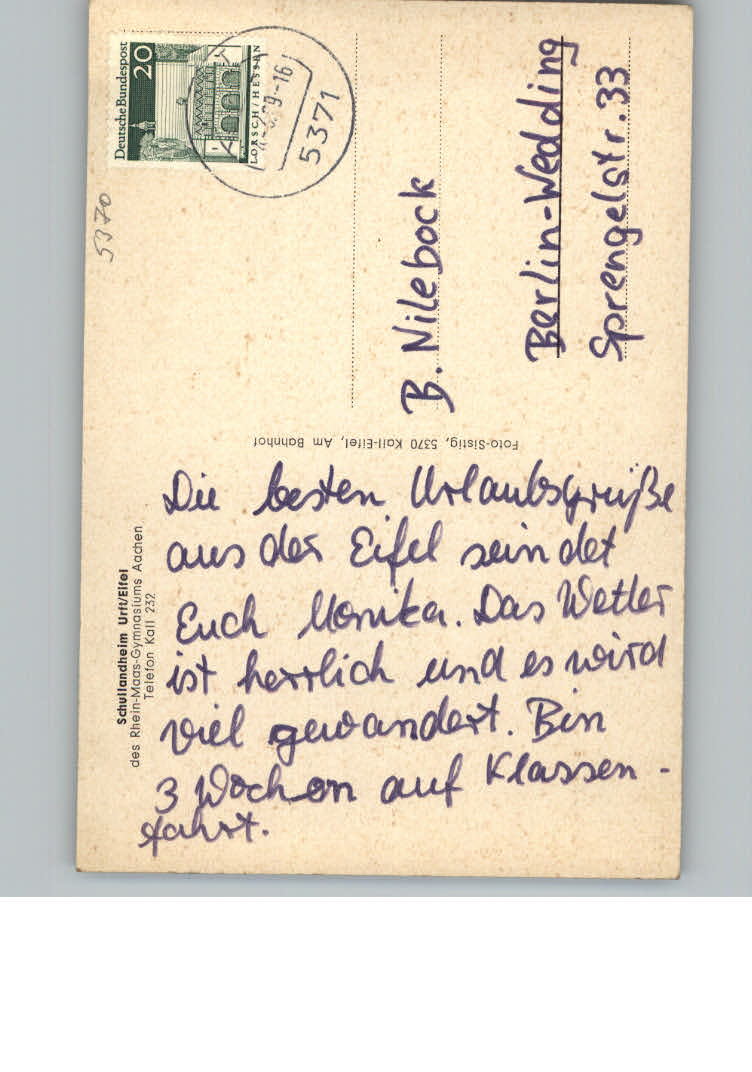 Schullandheim Urft/Eifel
des Rhein-Maas-Gymnasiums Aachen
Telefon Kall 232
Die besten Urlaubsgrüße
aus der Eifel sein det
Euch Monika. Das Wetter
ist herrlich und es wird
viel gewandert. Bin
3 Wochen auf Klassen -
fahrt.
Foto-Sistig, 5370 Kall-Eifel, Am Bahnhof
5370
Deutsche Bundespost
20
LORSCH/HESSEN
-16
5371
B. Nilebock
Berlin-Wedding
Sprengelstr. 33